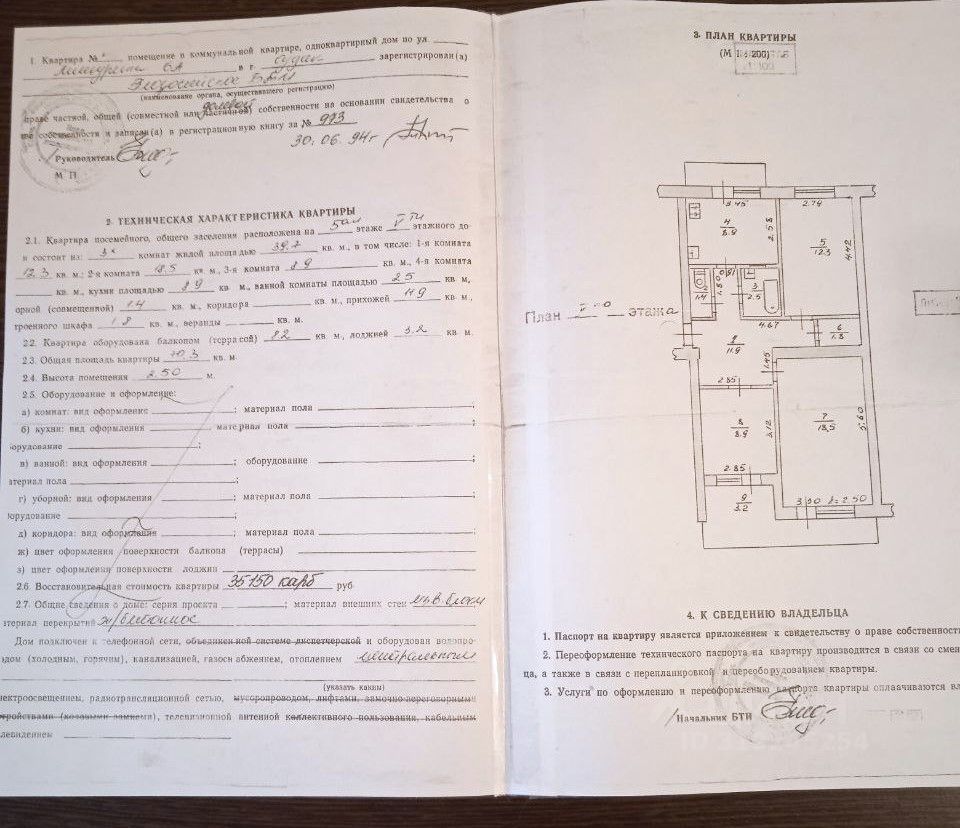 1. Квартира № помещение в коммунальной квартире, одноквартирный дом по ул.
в г. Судак зарегистрирован(а)
(наименование органа, осуществившего регистрацию)
долевой
праве частной, общей (совместной или частичной) собственности на основании свидетельства о
ве собственности и записан(а) в регистрационную книгу за № 973
30.06.94г
Руководитель
М П
2. ТЕХНИЧЕСКАЯ ХАРАКТЕРИСТИКА КВАРТИРЫ
2.1. Квартира посемейного, общего заселения расположена на 5ом этаже V ти этажного до-
состоит из: 3х комнат жилой площадью 39.7 кв. м., в том числе: 1-я комната
12.3 кв м.; 2-я комната 18.5 кв м., 3-я комната 8.9 кв. м., 4-я комната
кв. м., кухни площадью 8.9 кв. м., ванной комнаты площадью 2.5 кв. м,
орной (совмещенной) 1.4 кв. м., коридора кв. м., прихожей 11.9 кв. м.,
троенного шкафа 1.8 кв. м., веранды кв. м.
2.2. Квартира оборудована балконом (террасой) 8.2 кв. м., лоджией 3.2 кв. м.
2.3. Общая площадь квартиры 70.3 кв. м.
2.4. Высота помещения 2.50 м.
2.5. Оборудование и оформление:
а) комнат: вид оформления ; материал пола ;
б) кухни: вид оформления материал пола ;
орудование ;
в) ванной: вид оформления ; оборудование ;
атериал пола ;
г) уборной: вид оформления ; материал пола ;
орудование ;
д) коридора: вид оформления ; материал пола ;
ж) цвет оформления поверхности балкона (террасы)
з) цвет оформления поверхности лоджии
2.6. Восстановительная стоимость квартиры 35150 карб руб.
2.7. Общие сведения о доме: серия проекта ; материал внешних стен блоки
атериал перекрытий ж/бетонное
Дом подключен к телефонной сети, объединенной системе диспетчерской и оборудован водопро-
одом (холодным, горячим), канализацией, газоснабжением, отоплением центральным
(указать каким)
лектроосвещением, радиотрансляционной сетью, мусоропроводом, лифтами, замочно-переговорным
тройствами (кодовыми замками), телевизионной антенной коллективного пользования, кабельным
левидением
3. ПЛАН КВАРТИРЫ
(М 1:200)
1:100
План V го этажа
3.45
2.74
4
8.9
2.58
5
12.3
4.42
1.80
0.91
1.4
3
2.5
4.67
2
11.9
6
1.8
1.45
2.85
8
8.9
3.12
7
18.5
5.60
2.85
9
3.2
3.30
h=2.50
4. К СВЕДЕНИЮ ВЛАДЕЛЬЦА
1. Паспорт на квартиру является приложением к свидетельству о праве собственност
2. Переоформление технического паспорта на квартиру производится в связи со смен
ца, а также в связи с перепланировкой и переоборудованием квартиры.
3. Услуги по оформлению и переоформлению паспорта квартиры оплачиваются вл
Начальник БТИ